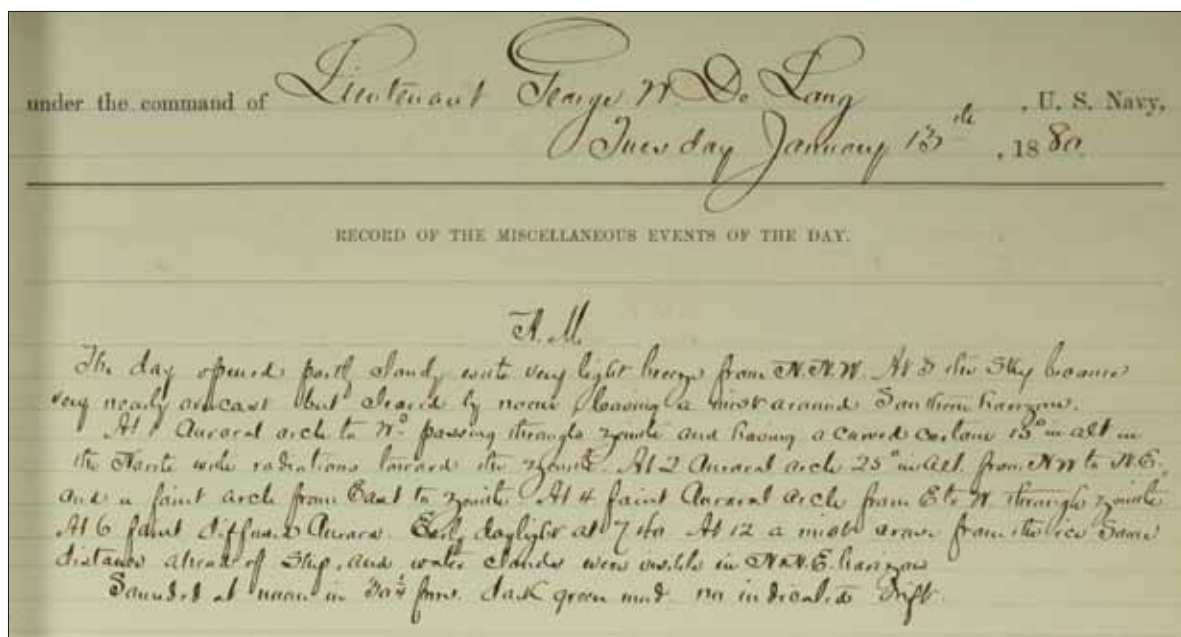 under the command of Lieutenant George W. De Long, U. S. Navy,
Tuesday January 13th, 1880.
RECORD OF THE MISCELLANEOUS EVENTS OF THE DAY.
A. M.
The day opened partly cloudy with very light breeze from N.N.W. At 3 the sky became
very nearly overcast but cleared by noon, leaving a mist around Southern horizon.
At 1 Auroral arch to passing through zenith and having a curved curtain 15° in alt in
the North with radiations toward the zenith. At 2 Auroral arch 25° in alt. from NW to N.E.,
and a faint arch from East to zenith. At 4 faint Auroral arch from E to W through zenith
At 6 faint diffused Aurora. Early daylight at 7 At 12 a mist arose from the ice some
distance ahead of ship, and water clouds were visible in N.N.E. horizon
Sounded at noon in fms. dark green mud no indicated drift.